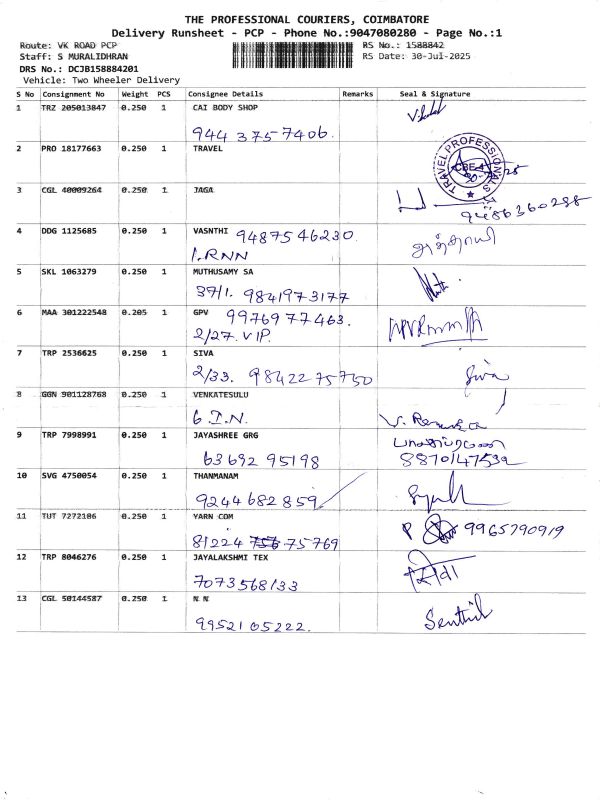 THE PROFESSIONAL COURIERS, COIMBATORE
Delivery Runsheet - PCP - Phone No.:9047080280 - Page No.:1
Route: VK ROAD PCP RS No.: 1588842
Staff: S MURALIDHRAN RS Date: 30-Jul-2025
DRS No.: DCJB158884201
Vehicle: Two Wheeler Delivery
S No Consignment No Weight PCS Consignee Details Remarks Seal & Signature
1 TRZ 205013847 0.250 1 CAI BODY SHOP
944 375 7406.
2 PRO 18177663 0.250 1 TRAVEL
TRAVEL PROFESSIONALS
CBE-4
3 CGL 40009264 0.250 1 JAGA
9486360288
4 DDG 1125685 0.250 1 VASNTHI 9487546230.
1. RNN
5 SKL 1063279 0.250 1 MUTHUSAMY SA
37/1. 9841973177
6 MAA 301222548 0.205 1 GPV 9976977463.
2/27. VIP.
7 TRP 2536625 0.250 1 SIVA
2/33. 9842275750 Siva
8 GGN 901128768 0.250 1 VENKATESULU
6 I.N. V. Renuka
9 TRP 7998991 0.250 1 JAYASHREE GRG
63692 95198 8870147532
10 SVG 4750054 0.250 1 THANMANAM
9244682859
11 TUT 7272186 0.250 1 YARN COM
P 9965790919
81224 756 75769
12 TRP 8046276 0.250 1 JAYALAKSHMI TEX
7073568133
13 CGL 50144587 0.250 1 N N
9952105222. Senthil